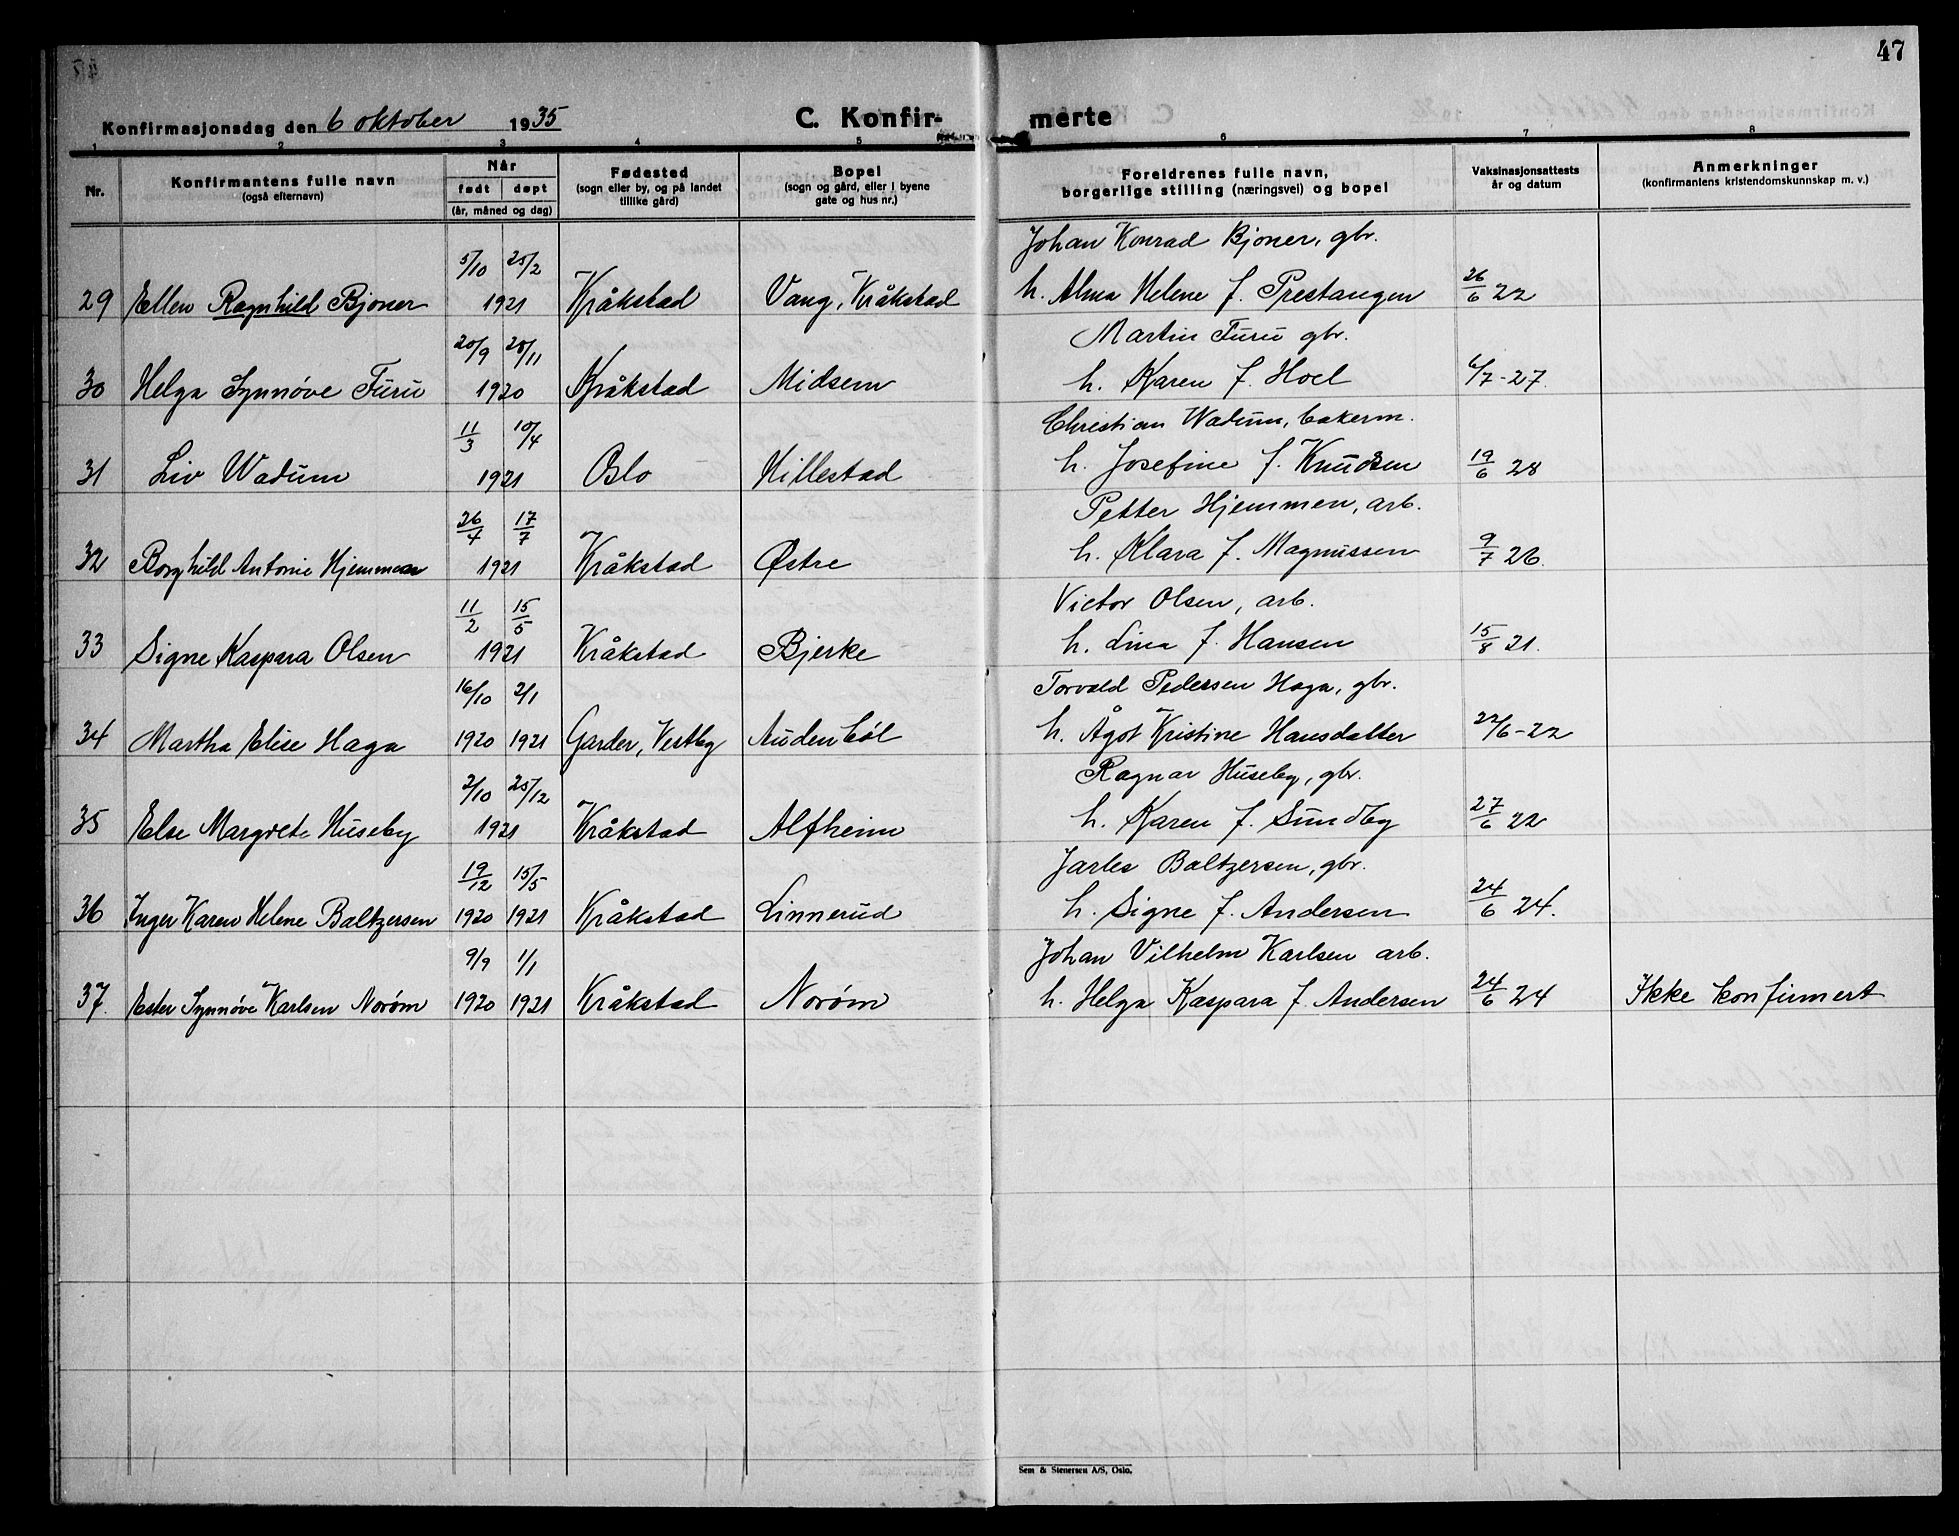 47
Konfirmasjonsdag den 6 oktober 1935
C. Konfir-
merte
1 2 3 4 5 6 7 8
Nr.
Konfirmantens fulle navn
(også efternavn)
Når
født døpt
(år, måned og dag)
Fødested
(sogn eller by, og på landet
tillike gård)
Bopel
(sogn og gård, eller i byene
gate og hus nr.)
Foreldrenes fulle navn,
borgerlige stilling (næringsvei) og bopel
Vaksinasjonsattests
år og datum
Anmerkninger
(konfirmantens kristendomskunnskap m. v.)
5/10 25/2 Johan Konrad Bjoner, gbr.
29 Ellen Ragnhild Bjoner 1921 Kråkstad Vang, Kråkstad h. Alma Helene f. Prestangen 26/6 22
20/9 28/11 Martin Furu gbr.
30 Helga Synnøve Furu 1920 Kråkstad Midsem h. Karen f. Hoel 6/7-27.
11/3 10/4 Christian Wadum, bakerm.
31 Liv Wadum 1921 Oslo Hillestad h. Josefine f. Knudsen 19/6 28
26/4 17/7 Petter Hjemmen, arb.
32 Borghild Antonie Hjemmen 1921 Kråkstad Østre h. Klara f. Magnussen 9/7 26.
11/2 15/5 Victor Olsen, arb.
33 Signe Kaspara Olsen 1921 Kråkstad Bjerke h. Lina f. Hansen 15/8 21.
16/10 2/1 Torvald Pedersen Haga, gbr.
34 Martha Elise Haga 1920 1921 Garder, Vestby Audenbøl h. Ågot Kristine Hansdatter 22/6-22
2/10 25/12 Ragnar Huseby, gbr.
35 Else Margrete Huseby 1921 Kråkstad Alfheim h. Karen f. Sundby 27/6 22
19/12 15/5 Jarles Baltzersen, gbr.
36 Inger Karen Helene Baltzersen 1920 1921 Kråkstad Linnerud h. Signe f. Andersen 24/6 24.
9/9 1/1 Johan Vilhelm Karlsen arb.
37. Ester Synnøve Karlsen Norøm 1920 1921 Kråkstad Norøm h. Helga Kaspara f. Andersen 24/6 24 Ikke konfirmert
Sem & Stenersen A/S, Oslo.